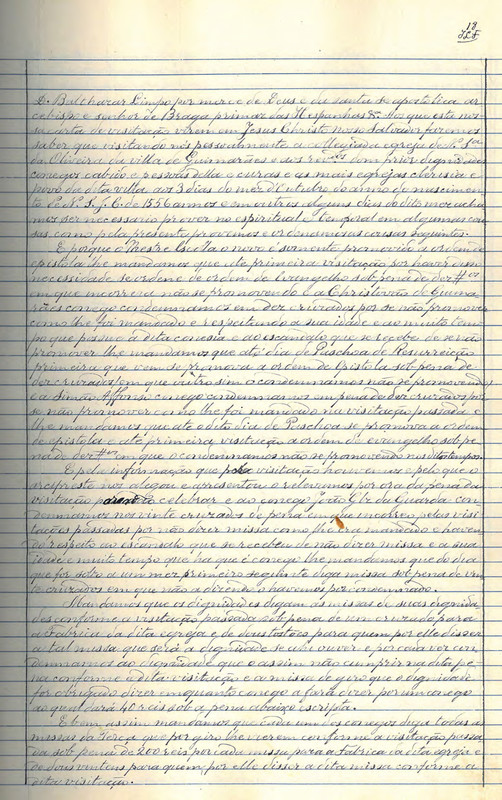 18
D. Balthazar Limpo por merce de Deus e da santa se apostolica ar
cebispo e senhor de Braga primaz das Hespanhas &ª Aos que esta nos
sa carta de visitação virem em Jesus Christo nosso Salvador fazemos
saber que visitando nós pessoalmente a collegiada egreja de N. Srª
da Oliveira da villa de Guimarães e sus dom prior dignidades
conegos cabido e pessoas della e curas e as mais egrejas clerisia e
povo da dita villa aos 3 dias do mez d'Outubro do anno do nascimen
to de N. S. J. C. de 1556 annos e em outros alguns dias do dito mez acha
mos ser necessario prover no espiritual e temporal em algumas cou
sas como pela presente provemos e ordenamos as cousas seguintes.
E porque o Mestre Escola o novo é somente promovido a ordem de
epistola lhe mandamos que ate primeira visitação por haver
necessidade se ordene de ordem de Evangelho sob pena de dez
em que incorrera não se promovendo e a Christovão de Guima
rães conego condemnamos em dez cruzados por se não promover
como lhe foi mandado e respeitando a sua idade e ao muito tem
po que possue a dita conesia e ao escandalo que se recebe de se não
promover lhe mandamos que até dia de Paschoa de Resurreição
primeira que vem se promova a ordem de Epistola sob pena de
dez cruzados em que outro sim o condemnamos não se promovendo
e a Simão Affonso conego condemnamos em pena de dez cruzados por
se não promover como lhe foi mandado na visitação passada e
lhe mandamos que até o dito dia de Paschoa se promova a ordem
de epistola e até primeira visitação a ordem do evangelho sob pe
na de dez em que o condemnamos não se promovendo nos ditos tempos.
E pela informação que pela visitação houvemos e pelo que o
arcipreste nos alegou e apresentou o relevamos por ora da pena da
visitação celebrar e ao conego João Glz da Guarda con
demnamos nos vinte cruzados de pena em que incorreo pelas visi
tações passadas por não dizer missa como lhe era mandado e haven
do respeito ao escandalo que se recebeu de não dizer missa e a sua
idade e muito tempo que ha que é conego lhe mandamos que do dia
que for solto a um mez primeiro seguinte diga missa sob pena de vin
te cruzados em que não a dizendo o havemos por condemnado.
Mandamos que os dignidades digam as missas de suas dignida
des conforme a visitação passada sob pena de um cruzado para
a fabrica da dita egreja e de dous tostões para quem por elle disser
a tal missa que será a dignidade se a hi ouver e por cada vez con
demnamos ao dignidade que o assim não cumprir na dita pe
na conforme a dita visitação e a missa de gero que o dignidade
for obrigado dizer emquanto conego a fará dizer por um conego
ao qual dará 40 reis sob a pena abaixo escripta.
E bem assim mandamos que cada um dos conegos diga todas as
missas da Terça que por gyro lhe vierem conforme a visitação passa
da sob pena de 200 reis por cada missa para a fabrica da dita egreja e
de dous vintens para quem por elle disser a dita missa conforme a
dita visitação.